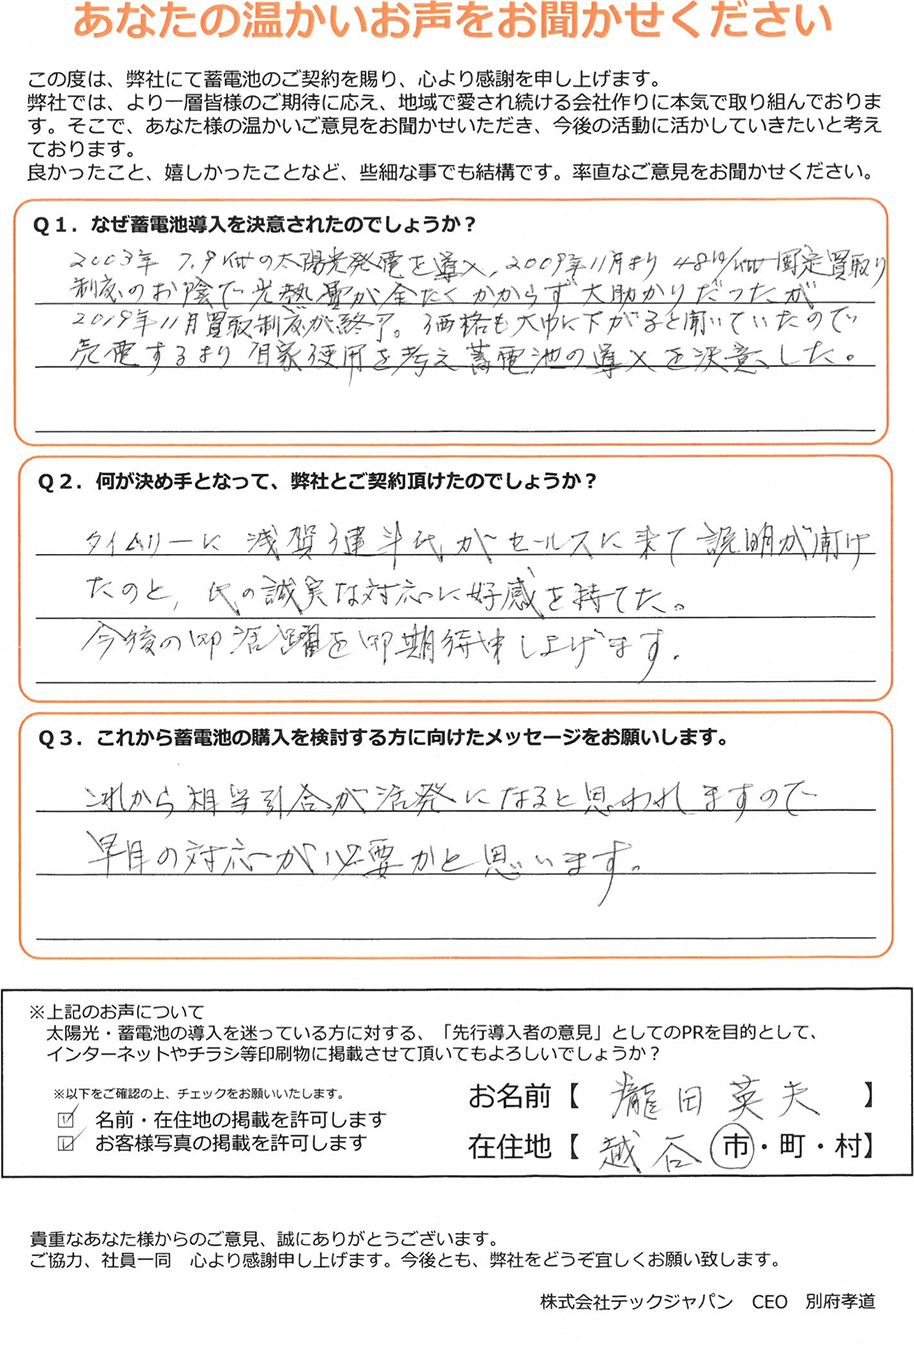 あなたの温かいお声をお聞かせください
この度は、弊社にて蓄電池のご契約を賜り、心より感謝を申し上げます。
弊社では、より一層皆様のご期待に応え、地域で愛され続ける会社作りに本気で取り組んでおりま
す。そこで、あなた様の温かいご意見をお聞かせいただき、今後の活動に活かしていきたいと考え
ております。
良かったこと、嬉しかったことなど、些細な事でも結構です。率直なご意見をお聞かせください。
Q1．なぜ蓄電池導入を決意されたのでしょうか？
2003年 7.9kwの太陽光発電を導入、2009年11月より 48円/kw 固定買取り
制度のお陰で光熱費が全たくかからず大助かりだったが
2019年11月買取制度が終了。価格も大巾に下がると聞いていたので
売電するより自家使用を考え蓄電池の導入を決意した。
Q2．何が決め手となって、弊社とご契約頂けたのでしょうか？
タイムリーに 浅賀健斗氏がセールスに来て説明が聞け
たのと、氏の誠実な対応に好感を持てた。
今後の御活躍を御期待申し上げます。
Q3．これから蓄電池の購入を検討する方に向けたメッセージをお願いします。
これから相当引合が活発になると思われますので
早目の対応が必要かと思います。
※上記のお声について
太陽光・蓄電池の導入を迷っている方に対する、「先行導入者の意見」としてのPRを目的として、
インターネットやチラシ等印刷物に掲載させて頂いてもよろしいでしょうか？
※以下をご確認の上、チェックをお願いいたします。
☑ 名前・在住地の掲載を許可します
☑ お客様写真の掲載を許可します
お名前【 瀧田英夫 】
在住地【 越谷 市・町・村】
貴重なあなた様からのご意見、誠にありがとうございます。
ご協力、社員一同　心より感謝申し上げます。今後とも、弊社をどうぞ宜しくお願い致します。
株式会社テックジャパン　CEO　別府孝道